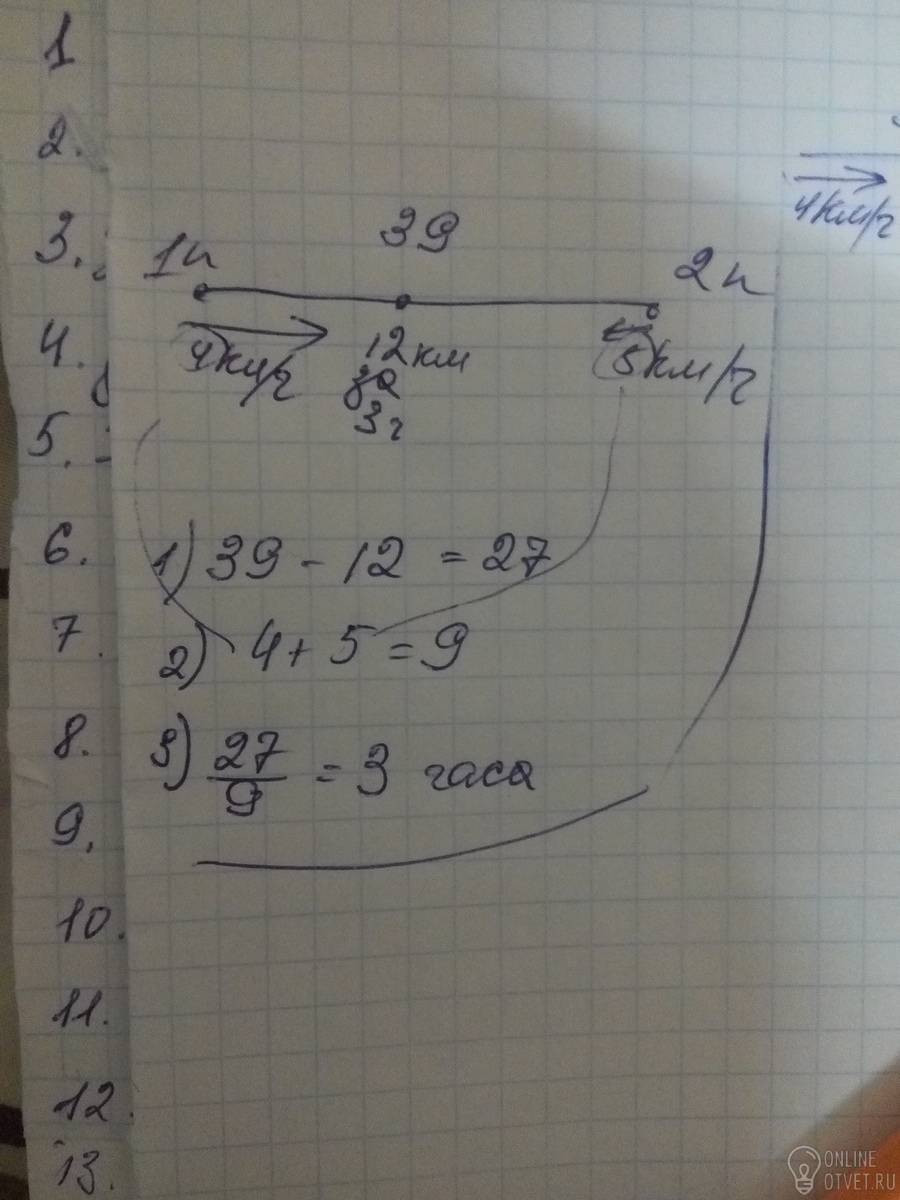 1
2.
3.
4.
5.
6.
7.
8.
9.
10.
11.
12.
13.
39
1п 2п
4км/ч 12км 5км/ч
за
3ч
1) 39 - 12 = 27
2) 4 + 5 = 9
3) 27/9 = 3 часа
4км/ч
ONLINE
OTVET.RU